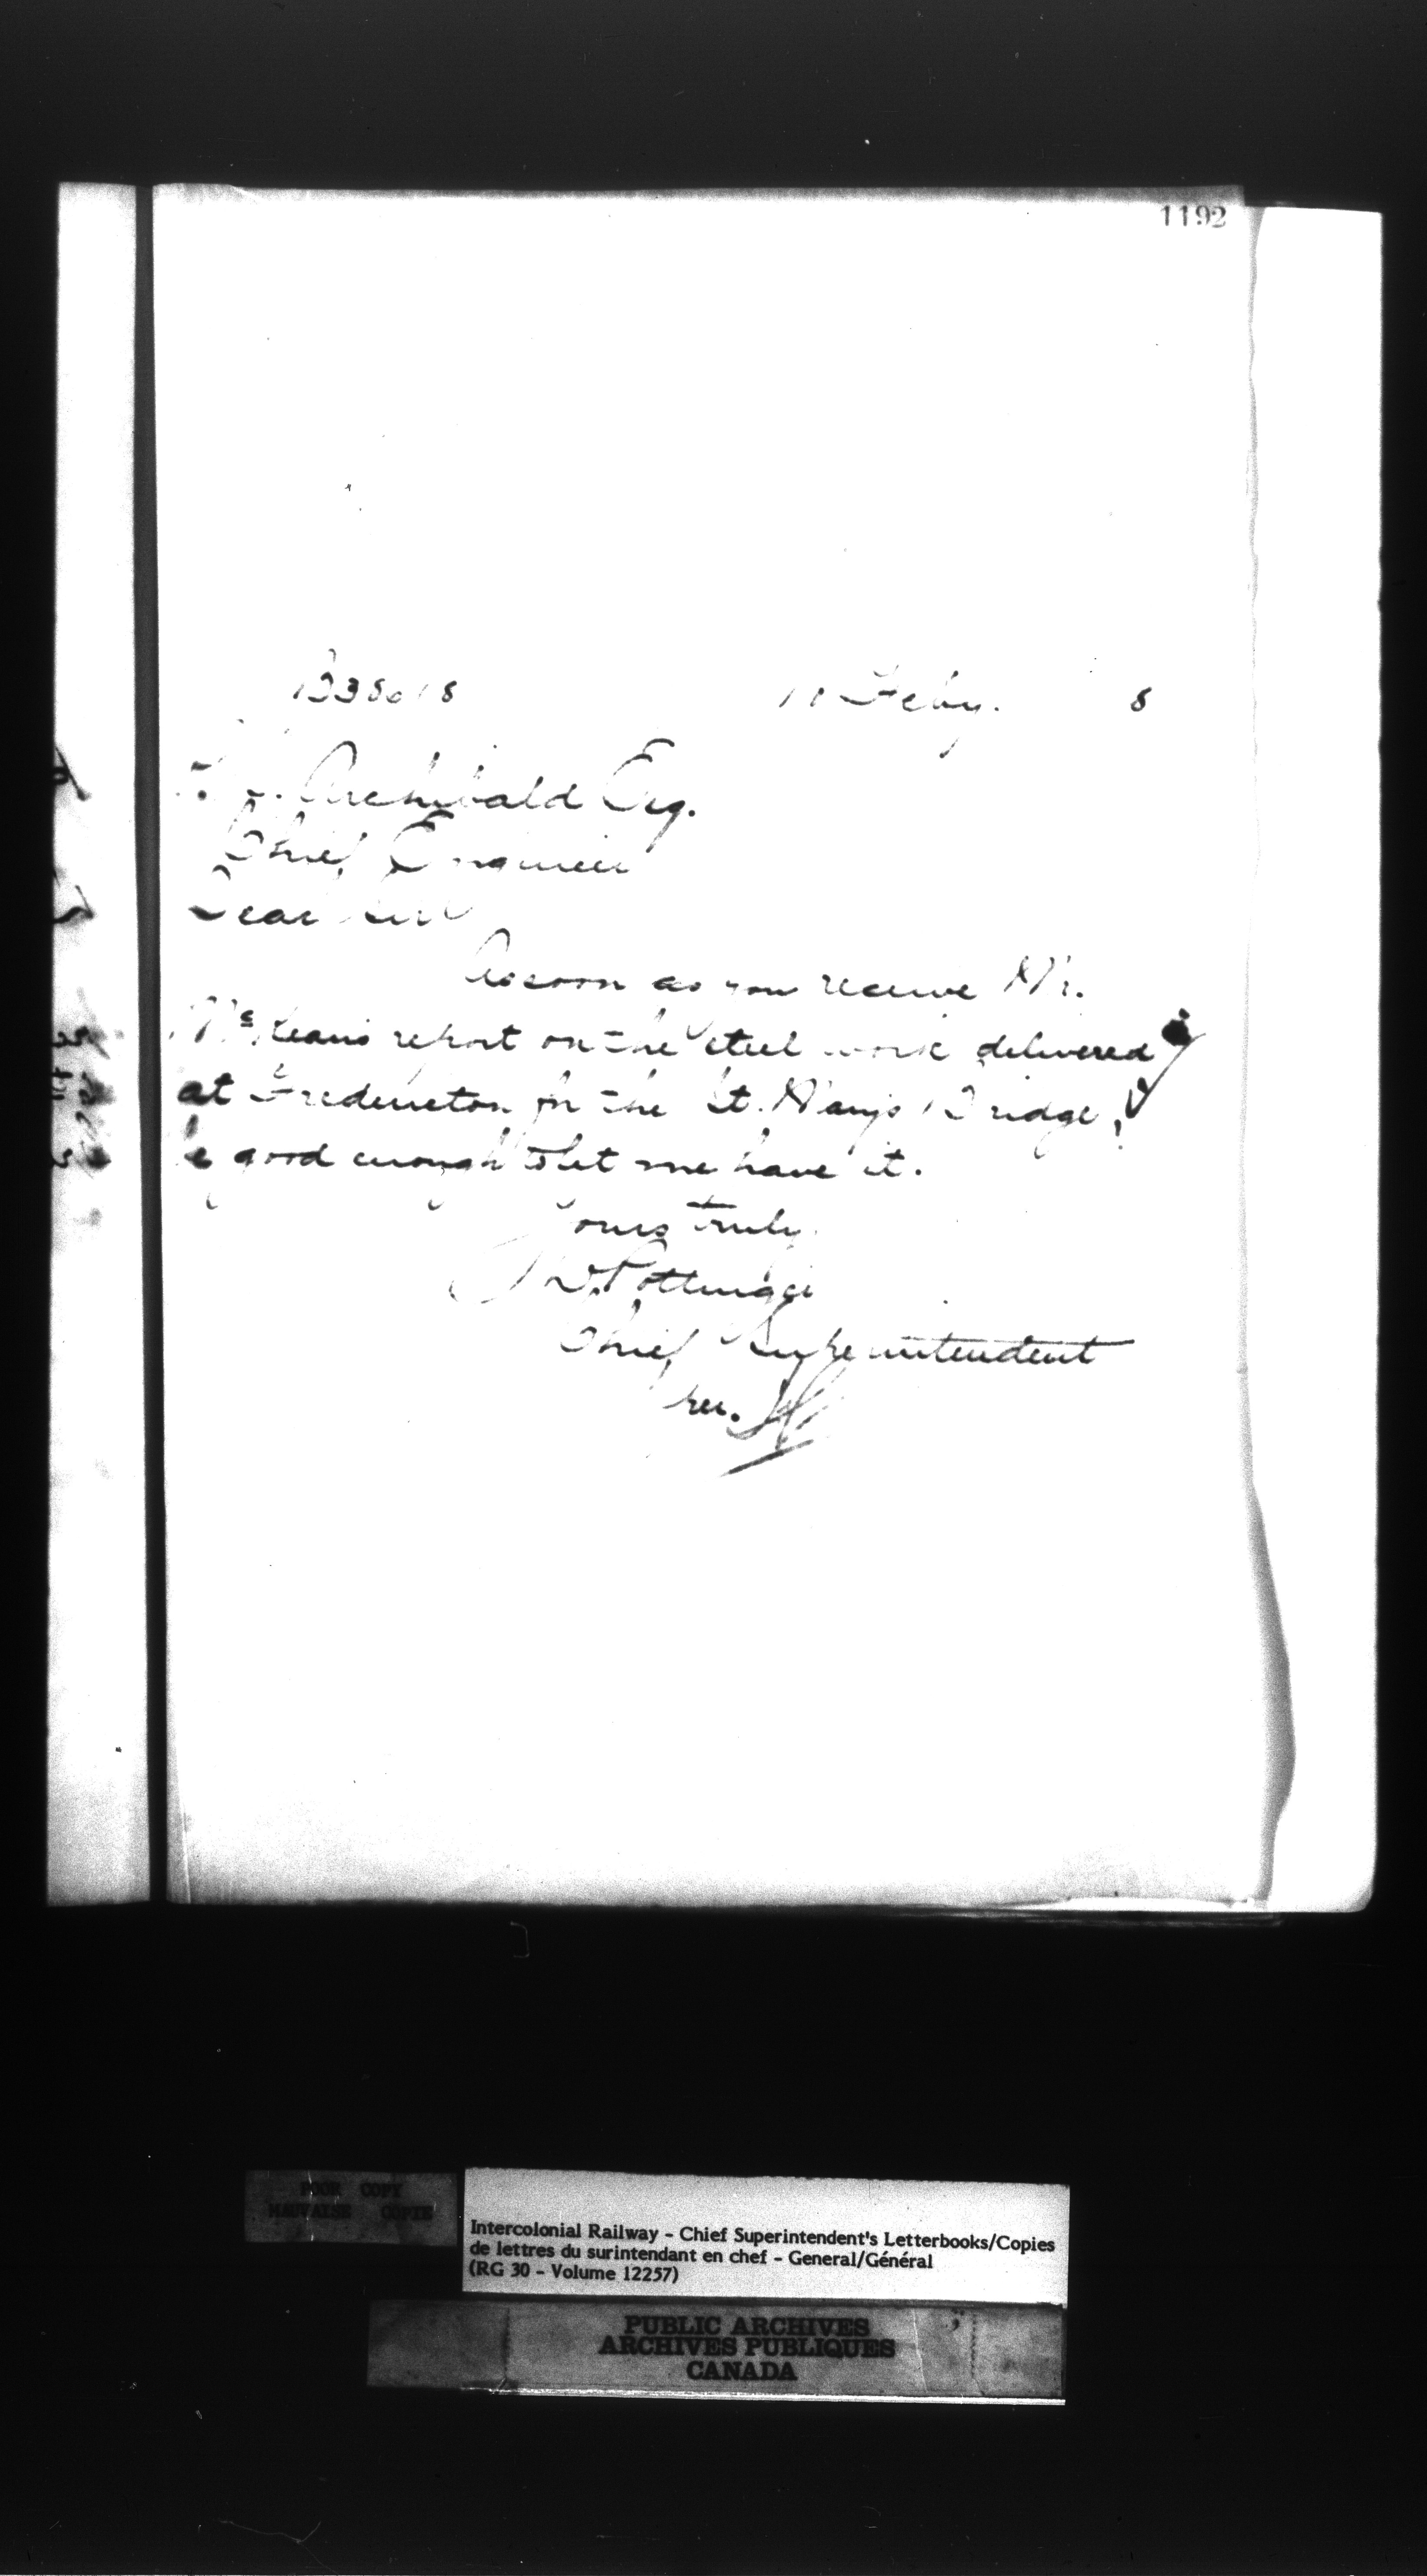 1192
11 Feby. 8
Archibald Esq.
Chief Engineer
Dear Sir
As soon as you receive Mr.
McKean's report on the steel work delivered
at Fredericton for the St. Mary's Bridge,
be good enough to let me have it.
Yours truly
D. Pottinger
Chief Superintendent
per.
POOR COPY
MAUVAISE COPIE
Intercolonial Railway - Chief Superintendent's Letterbooks/Copies
de lettres du surintendant en chef - General/Général
(RG 30 - Volume 12257)
PUBLIC ARCHIVES
ARCHIVES PUBLIQUES
CANADA